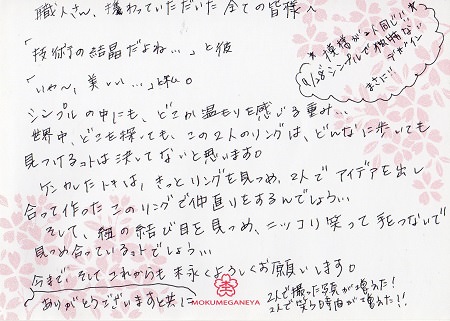 職人さん、携わっていただいた全ての皆様へ
「技術の結晶だよね…」と彼
「いやん、美しい…」と私。
シンプルの中にも、どこか温もりを感じる重み…
世界中、どこを探しても、この2人のリングは、どんなに歩いても
見つけるコトは決してないと思います。
ケンカしたトキは、きっとリングを見つめ、2人でアイデアを出し
合って作ったこのリングで仲直りをするんでしょう…
そして、紐の結び目を見つめ、ニッコリ笑って手をつないで
見つめ合っているコトでしょう…
今まで、そしてこれからも末永くよろしくお願いします。
ありがとうございますと共に
*模様が2ト同じ!! *
シンプルで
デザイン
まさに!!
MOKUMEGANEYA
2人で撮った写真が増えた!
2人で笑う時間が増えた!!